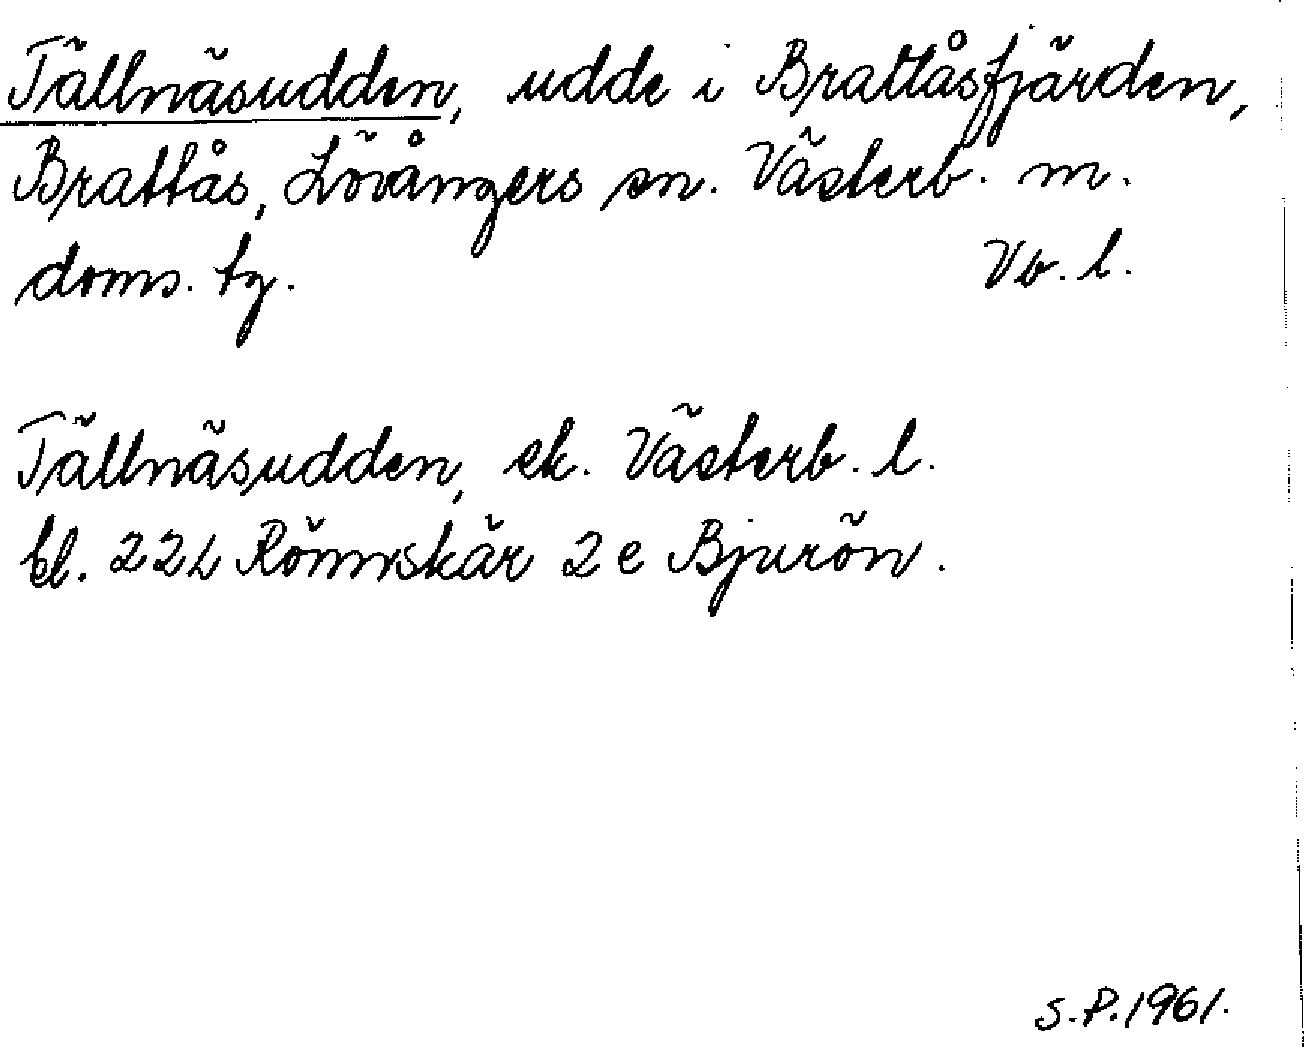 Tällnäsudden, udde i Brattåsfjärden,
Brattås, Lövångers sn. Västerb. m.
doms. tg. Vb. l.
Tällnäsudden, ek. Västerb. l.
bl. 22L Rönnskär 2e Bjurön.
S.P. 1961.